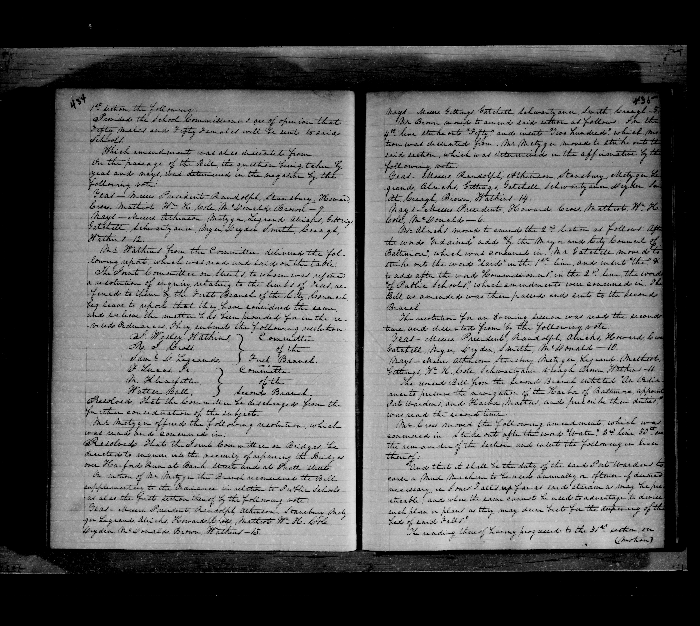 434
1st section the following
Provided the School Commissioners are of opinion that
Fifty Males and Fifty Females will be sent to said
Schools.
Which amendment was also dissented from
On the passage of the Bill, the question being taken by
yeas and nays, was determined in the negative by the
following vote.
Yeas - Messrs President Randolph, Stansbury, Howard
Cross, Mathiot, Wm H. Cole, McDonald & Brown - 9
Nays - Messrs Atkinson, Metzger, Legrand, Alricks, Gittings
Gatchell, Schwartzauer, Myer, Snyder, Smith, Creagh,
Watkins 12
Mr Watkins from the Committee delivered the fol-
lowing report, which was read and laid on the table.
The Joint Committee on Streets, to whom was referred
a resolution of enquiry relating to the limbs of Trees, re-
ferred to them by the First Branch of the City Council
beg leave to report that they have considered the same
and believe the matter to be provided for in the re-
vised Ordinances. They submit the following resolution
Wesley Watkins } Committee
Cross } of the
Saml D. Legrand } First Branch
Lucas Jr } Committee
} of the
Walter Ball, } Second Branch,
Resolved That the Committee be discharged from the
further consideration of the subject.
Mr Metzger offered the following resolution, which
was read and concurred in.
Resolved That the Joint Committee on Bridges, be
directed to enquire into the necessity of repairing the Bridges
over Harford Run at Bank Street and at Pratt Street
On motion of Mr Metzger this Branch reconsidered the Bill
supplementary to the Ordinance in relation to Public Schools
as also the first section thereof by the following vote
Yeas - Messrs President, Randolph, Atkinson, Stansbury, Metz-
ger, Legrand, Alricks, Howard, Cross, Mathiot, Wm H. Cole
Snyder, McDonald, Brown, Watkins - 15
435
Nays - Messrs Gittings, Gatchell, Schwartzauer, Smith, Creagh
Mr Brown moved to amend said section as follows. In the
4th line strike out "Fifty" and insert "Two Hundred" which mo-
tion was dissented from. Mr Metzger moved to strike out the
said section, which was determined in the affirmative by the
following vote.
Yeas - Messrs Randolph, Atkinson, Stansbury, Metzger, Le-
grand, Alricks, Gittings, Gatchell, Schwartzauer, Snyder, Sm-
ith, Creagh, Brown, Watkins 14.
Nays - Messrs President, Howard, Cross, Mathiot, Wm H.
Cole, McDonald - 6
Mr Alricks moved to amend the 2d section as follows After
the words "ordained" add "by the Mayor and City Council of
Baltimore" which was concurred in. Mr Gatchell moved to
strike out the words in the 1st line, and insert "the" &
to add after the word "Commissioners" in the 2d line the words
"of Public Schools," which amendments were concurred in. The
Bill as amended was then passed and sent to the Second
Branch.
The resolution for an evening session was read the second
time and dissented from by the following vote.
Yeas - Messrs President, Randolph, Alricks, Howard, Cross
Gatchell, Myer, Snyder, Smith, McDonald - 10
Nays - Messrs Atkinson, Stansbury, Metzger, Legrand, Mathiot,
Gittings, Wm H. Cole, Schwartzauer, Creagh, Brown, Watkins - 11
The revised Bill from the Second Branch entitled "An Ordin-
ance to preserve the navigation of the Harbor of Baltimore, appoint
Port Wardens and Harbor Masters, and prescribe their duties"
was read the second time.
Mr Cross moved the following amendments, which was
concurred in. Strike out after the word in line
the remainder of the section and insert the following in lieu
thereof.
"And that it shall be the duty of the said Port Wardens to
cause a Mud Machine to be used annually or oftener if deemed
necessary, in Jones' Falls up far as said stream as may be prac-
ticable, and when the same cannot be used to advantage to devise
such plan or plans as they may deem best for the deepening of the
bed of said Falls."
The reading thereof having progressed to the 31st section on
(motion)